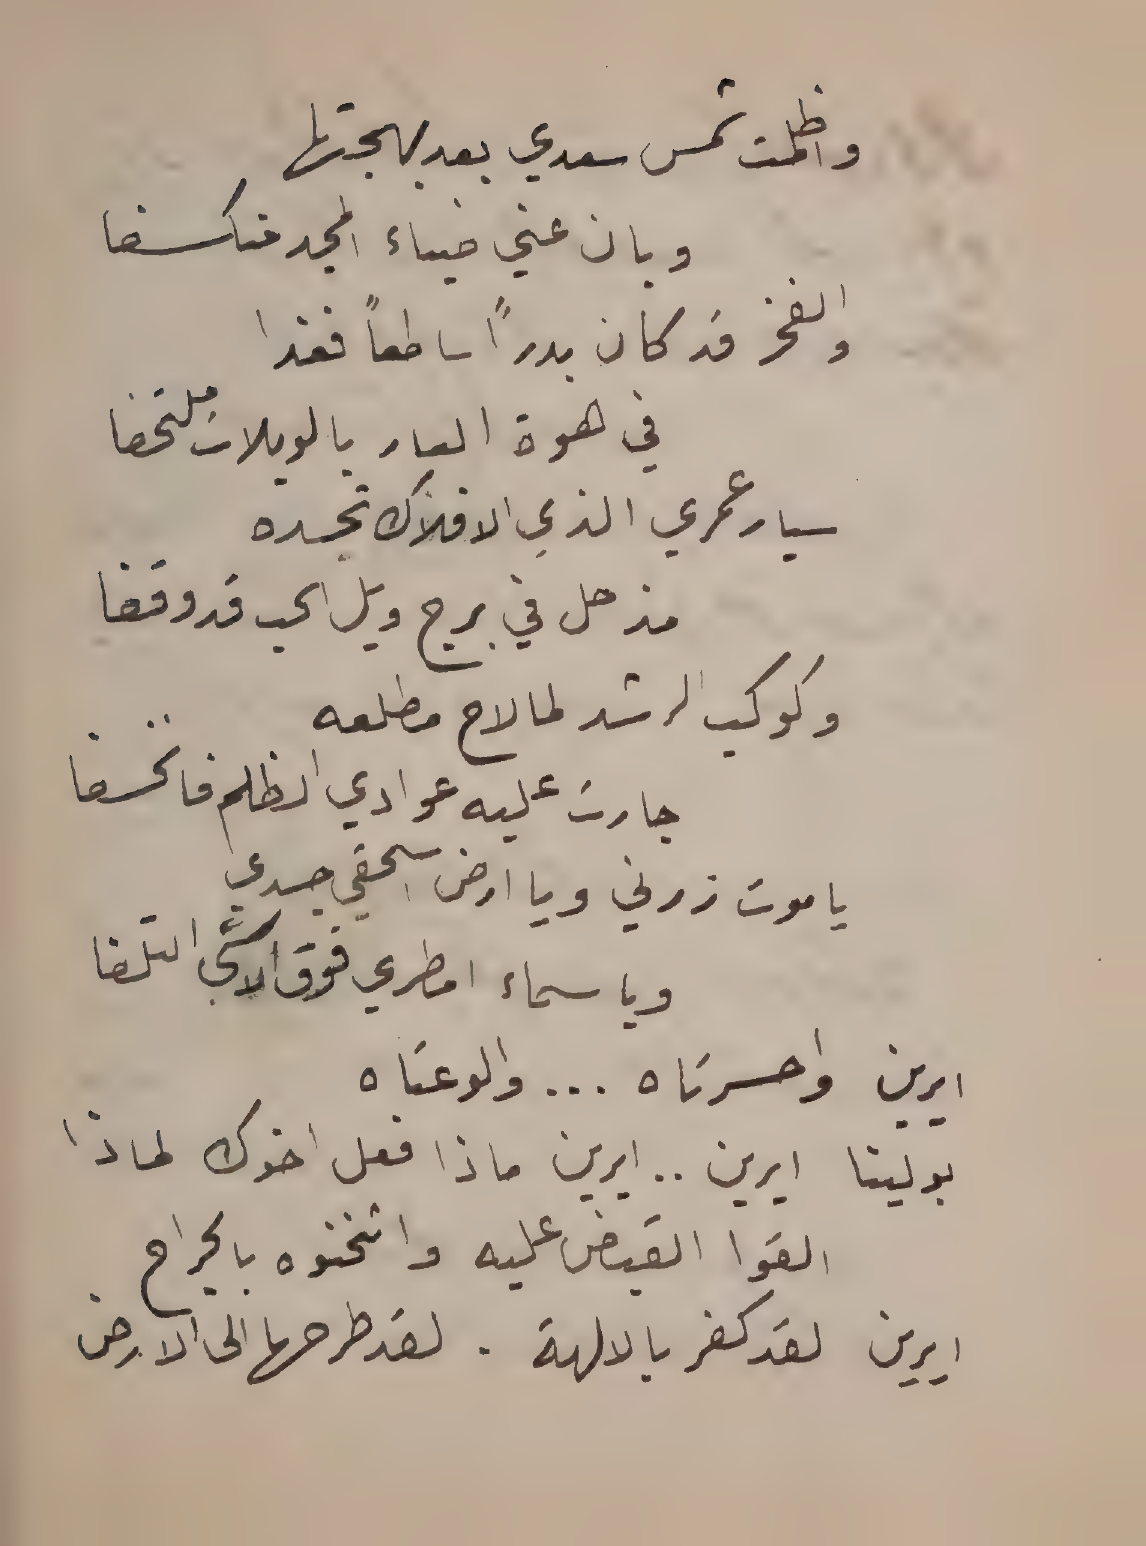 واظلمت شمس سعدي بعد بهجتها
وبان عني ضياء المجد فنكسفا
والفخر قد كان بدراً ساطعاً فغدا
في هوة العار بالويلات ملتحفا
سيار عمري الذي الافلاك تحسده
مذ حل في برج ويل الحب قد وقفا
وكوكب الرشد لما لاح مطلعه
جارت عليه عوادي الظلم فانخسفا
يا موت زرني ويا ارض اسحقي جسدي
ويا سماء امطري فوق الاسى التلفا
ايرين واحسرتاه ... والوعتاه
بولينا ايرين .. ايرين ماذا فعل اخوك لماذا
القوا القبض عليه واثخنوه بالجراح
ايرين لقد كفر بالالهة . لقد طرحها الى الارض